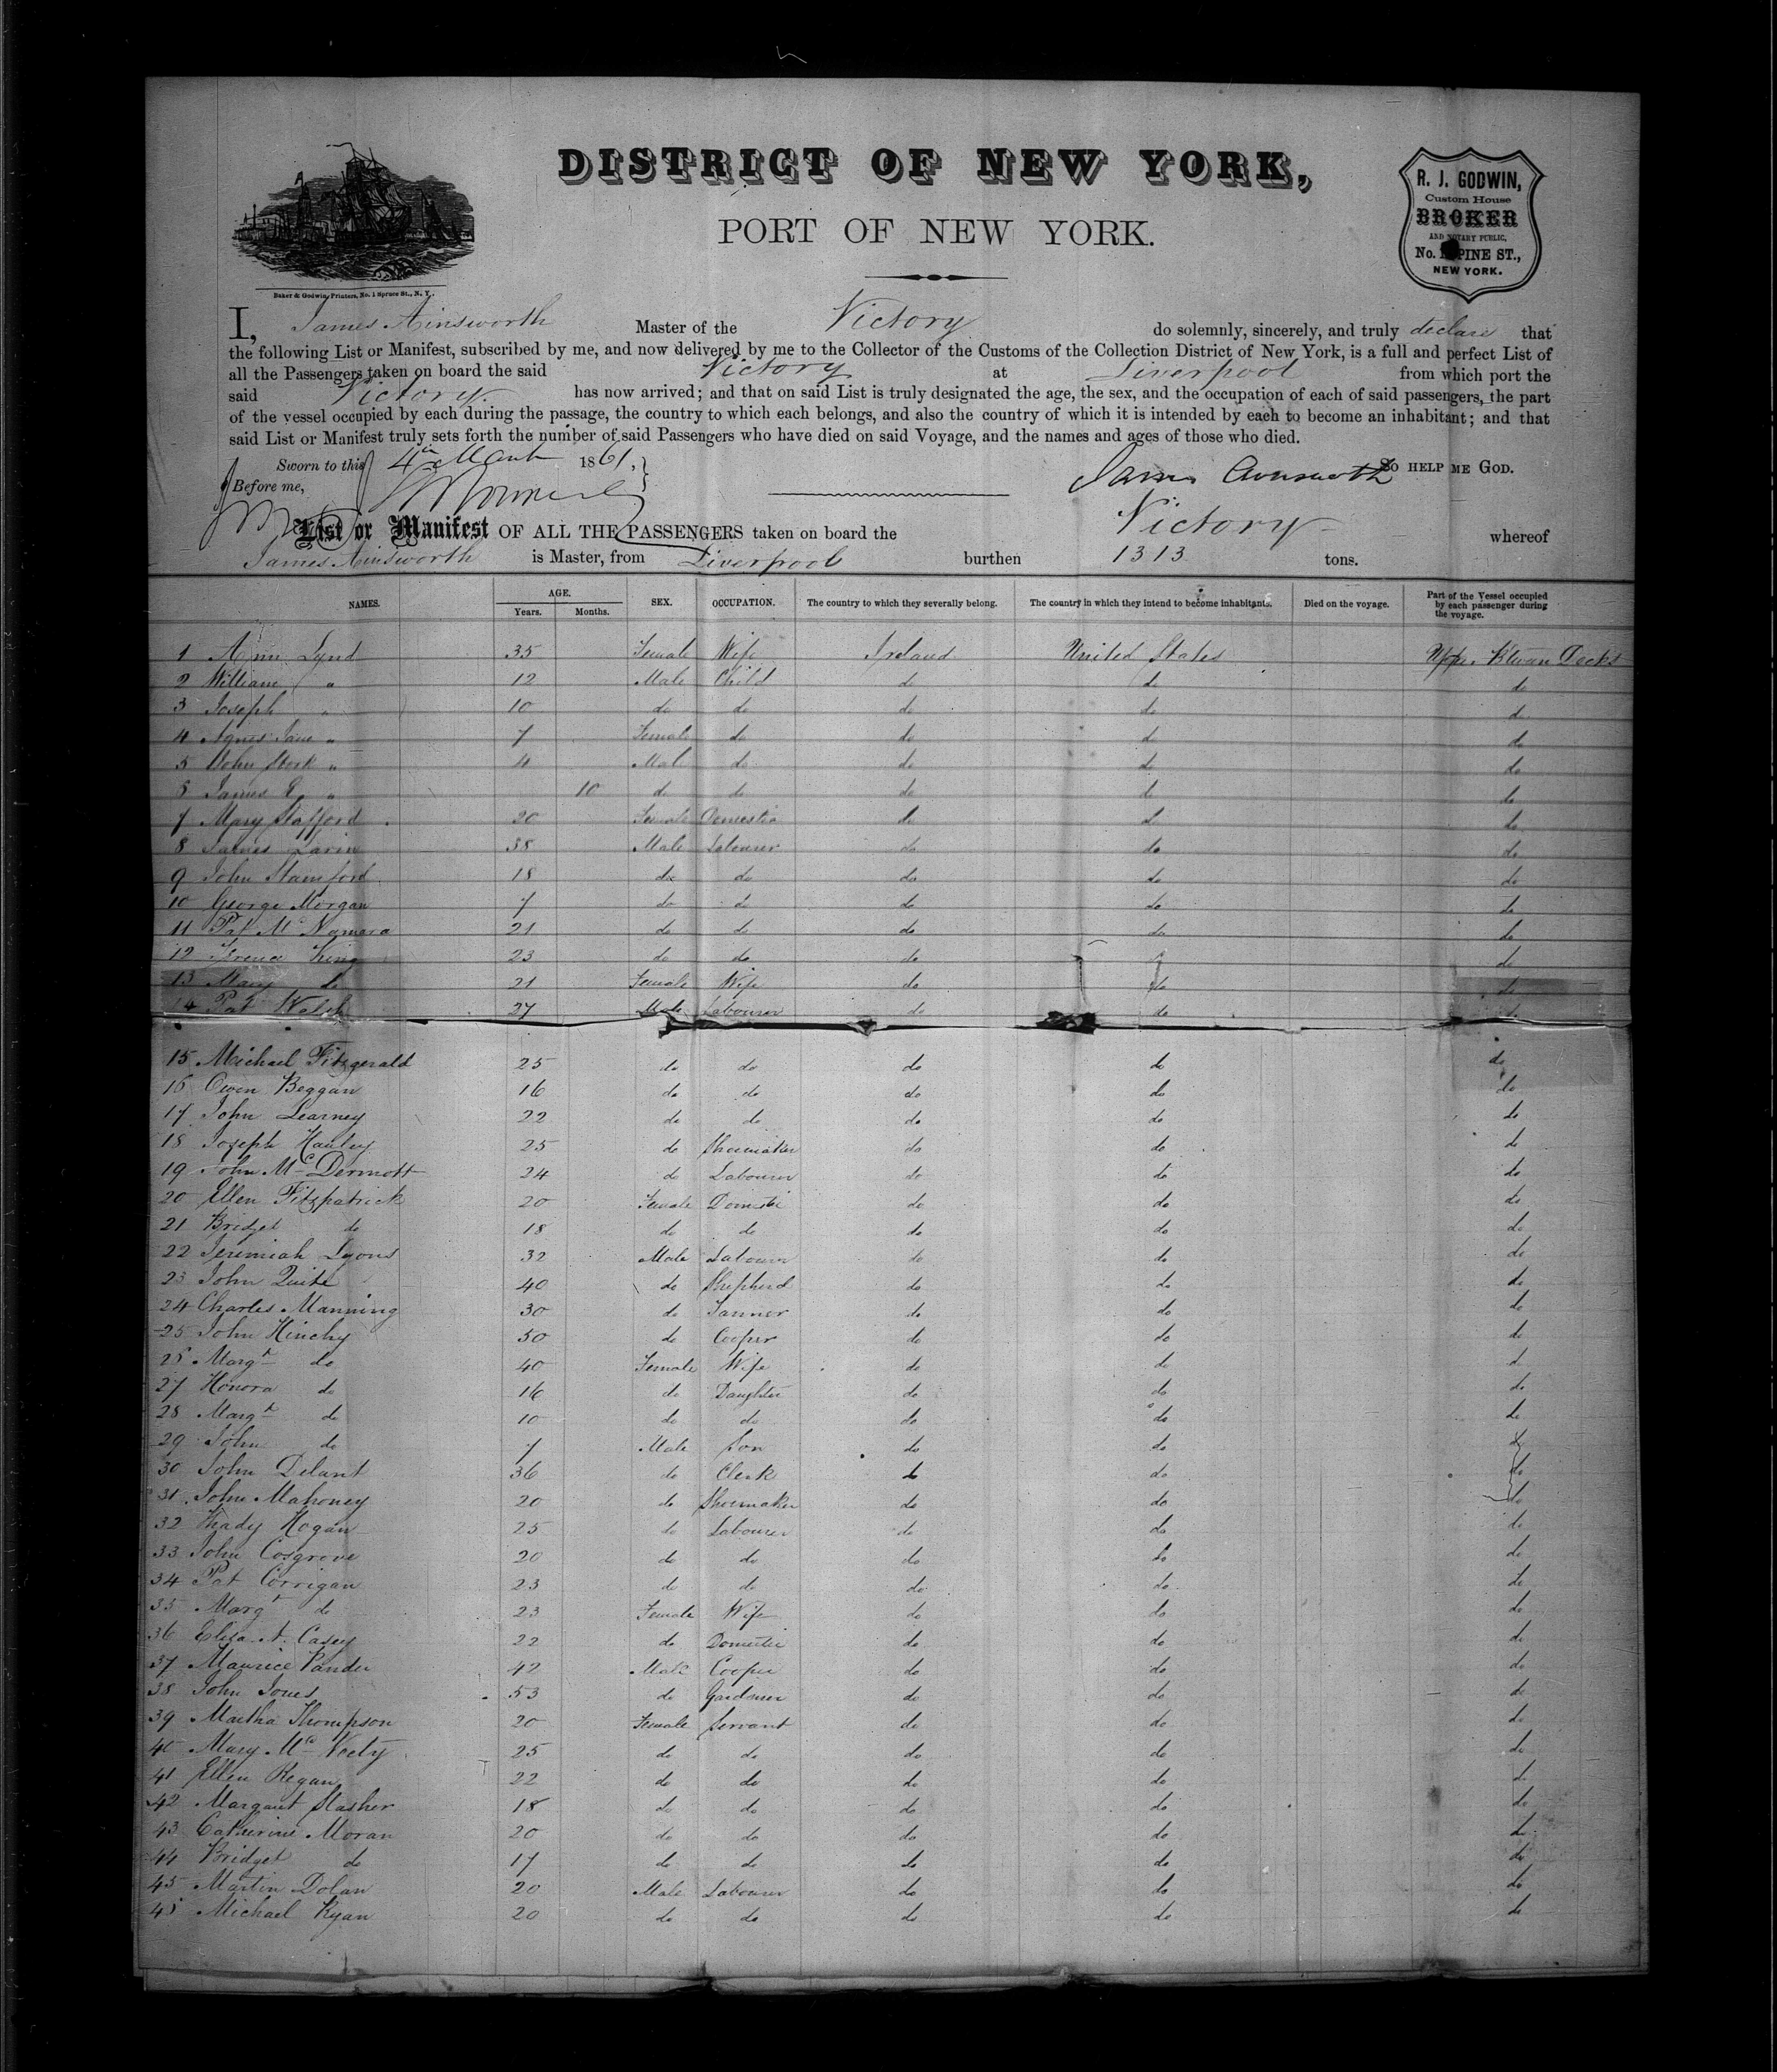 DISTRICT OF NEW YORK,
PORT OF NEW YORK.
R. J. GODWIN,
Custom House
BROKER
AND NOTARY PUBLIC,
No. PINE ST.,
NEW YORK.
Baker & Godwin, Printers, No. 1 Spruce St., N. Y.
I, James Ainsworth Master of the Victory do solemnly, sincerely, and truly declare that
the following List or Manifest, subscribed by me, and now delivered by me to the Collector of the Customs of the Collection District of New York, is a full and perfect List of
all the Passengers taken on board the said Victory at Liverpool from which port the
said Victory. has now arrived; and that on said List is truly designated the age, the sex, and the occupation of each of said passengers, the part
of the vessel occupied by each during the passage, the country to which each belongs, and also the country of which it is intended by each to become an inhabitant; and that
said List or Manifest truly sets forth the number of said Passengers who have died on said Voyage, and the names and ages of those who died.
Sworn to this 4th March 1861, SO HELP ME GOD.
Before me, James Ainsworth
List or Manifest OF ALL THE PASSENGERS taken on board the Victory whereof
James Ainsworth is Master, from Liverpool burthen 1313 tons.
NAMES. AGE. Years. Months. SEX. OCCUPATION. The country to which they severally belong. The country in which they intend to become inhabitants. Died on the voyage. Part of the Vessel occupied by each passenger during the voyage.
1 Ann Lynd 35 Female Wife Ireland United States Upper Btween Decks
2 William " 12 Male Child do do do
3 Joseph " 10 do do do do do
4 Agnes Jane " 7 Female do do do do
5 John Stork " 4 Male do do do do
6 James E. " 10 do do do do do
7 Mary Stafford 20 Female Domestic do do do
8 James Larin 38 Male Labourer do do do
9 John Stamford 18 do do do do do
10 George Morgan 7 do do do do do
11 Pat McNamara 21 do do do do do
12 King 23 do do do do
13 Mary do 21 Female Wife do do do
14 Pat Walsh 27 Male Labourer do do do
15 Michael Fitzgerald 25 do do do do do
16 Owen Beggan 16 do do do do do
17 John Learney 22 do do do do do
18 Joseph Hanley 25 do Shoemaker do do do
19 John McDermott 24 do Labourer do do do
20 Ellen Fitzpatrick 20 Female Domestic do do do
21 Bridget do 18 do do do do do
22 Jeremiah Lyons 32 Male Labourer do do do
23 John Quite 40 do Shepherd do do do
24 Charles Manning 30 do Tanner do do do
25 John Hinchy 50 do Cooper do do do
26 Margt do 40 Female Wife do do do
27 Honora do 16 do Daughter do do do
28 Margt do 10 do do do do do
29 John do 7 Male Son do do do
30 John Delant 36 do Clerk do do do
31 John Mahoney 20 do Shoemaker do do do
32 Thady Hogan 25 do Labourer do do do
33 John Cosgrove 20 do do do do do
34 Pat Corrigan 23 do do do do do
35 Margt do 23 Female Wife do do do
36 Eliza A. Casey 22 do Domestic do do do
37 Maurice Pander 42 Male Cooper do do do
38 John Jones 53 do Gardener do do do
39 Martha Thompson 20 Female Servant do do do
40 Mary Mc 25 do do do do do
41 Ellen Regan 22 do do do do do
42 Margaret Slasher 18 do do do do do
43 Catherine Moran 20 do do do do do
44 Bridget do 17 do do do do do
45 Martin Dolan 20 Male Labourer do do do
45 Michael Ryan 20 do do do do do